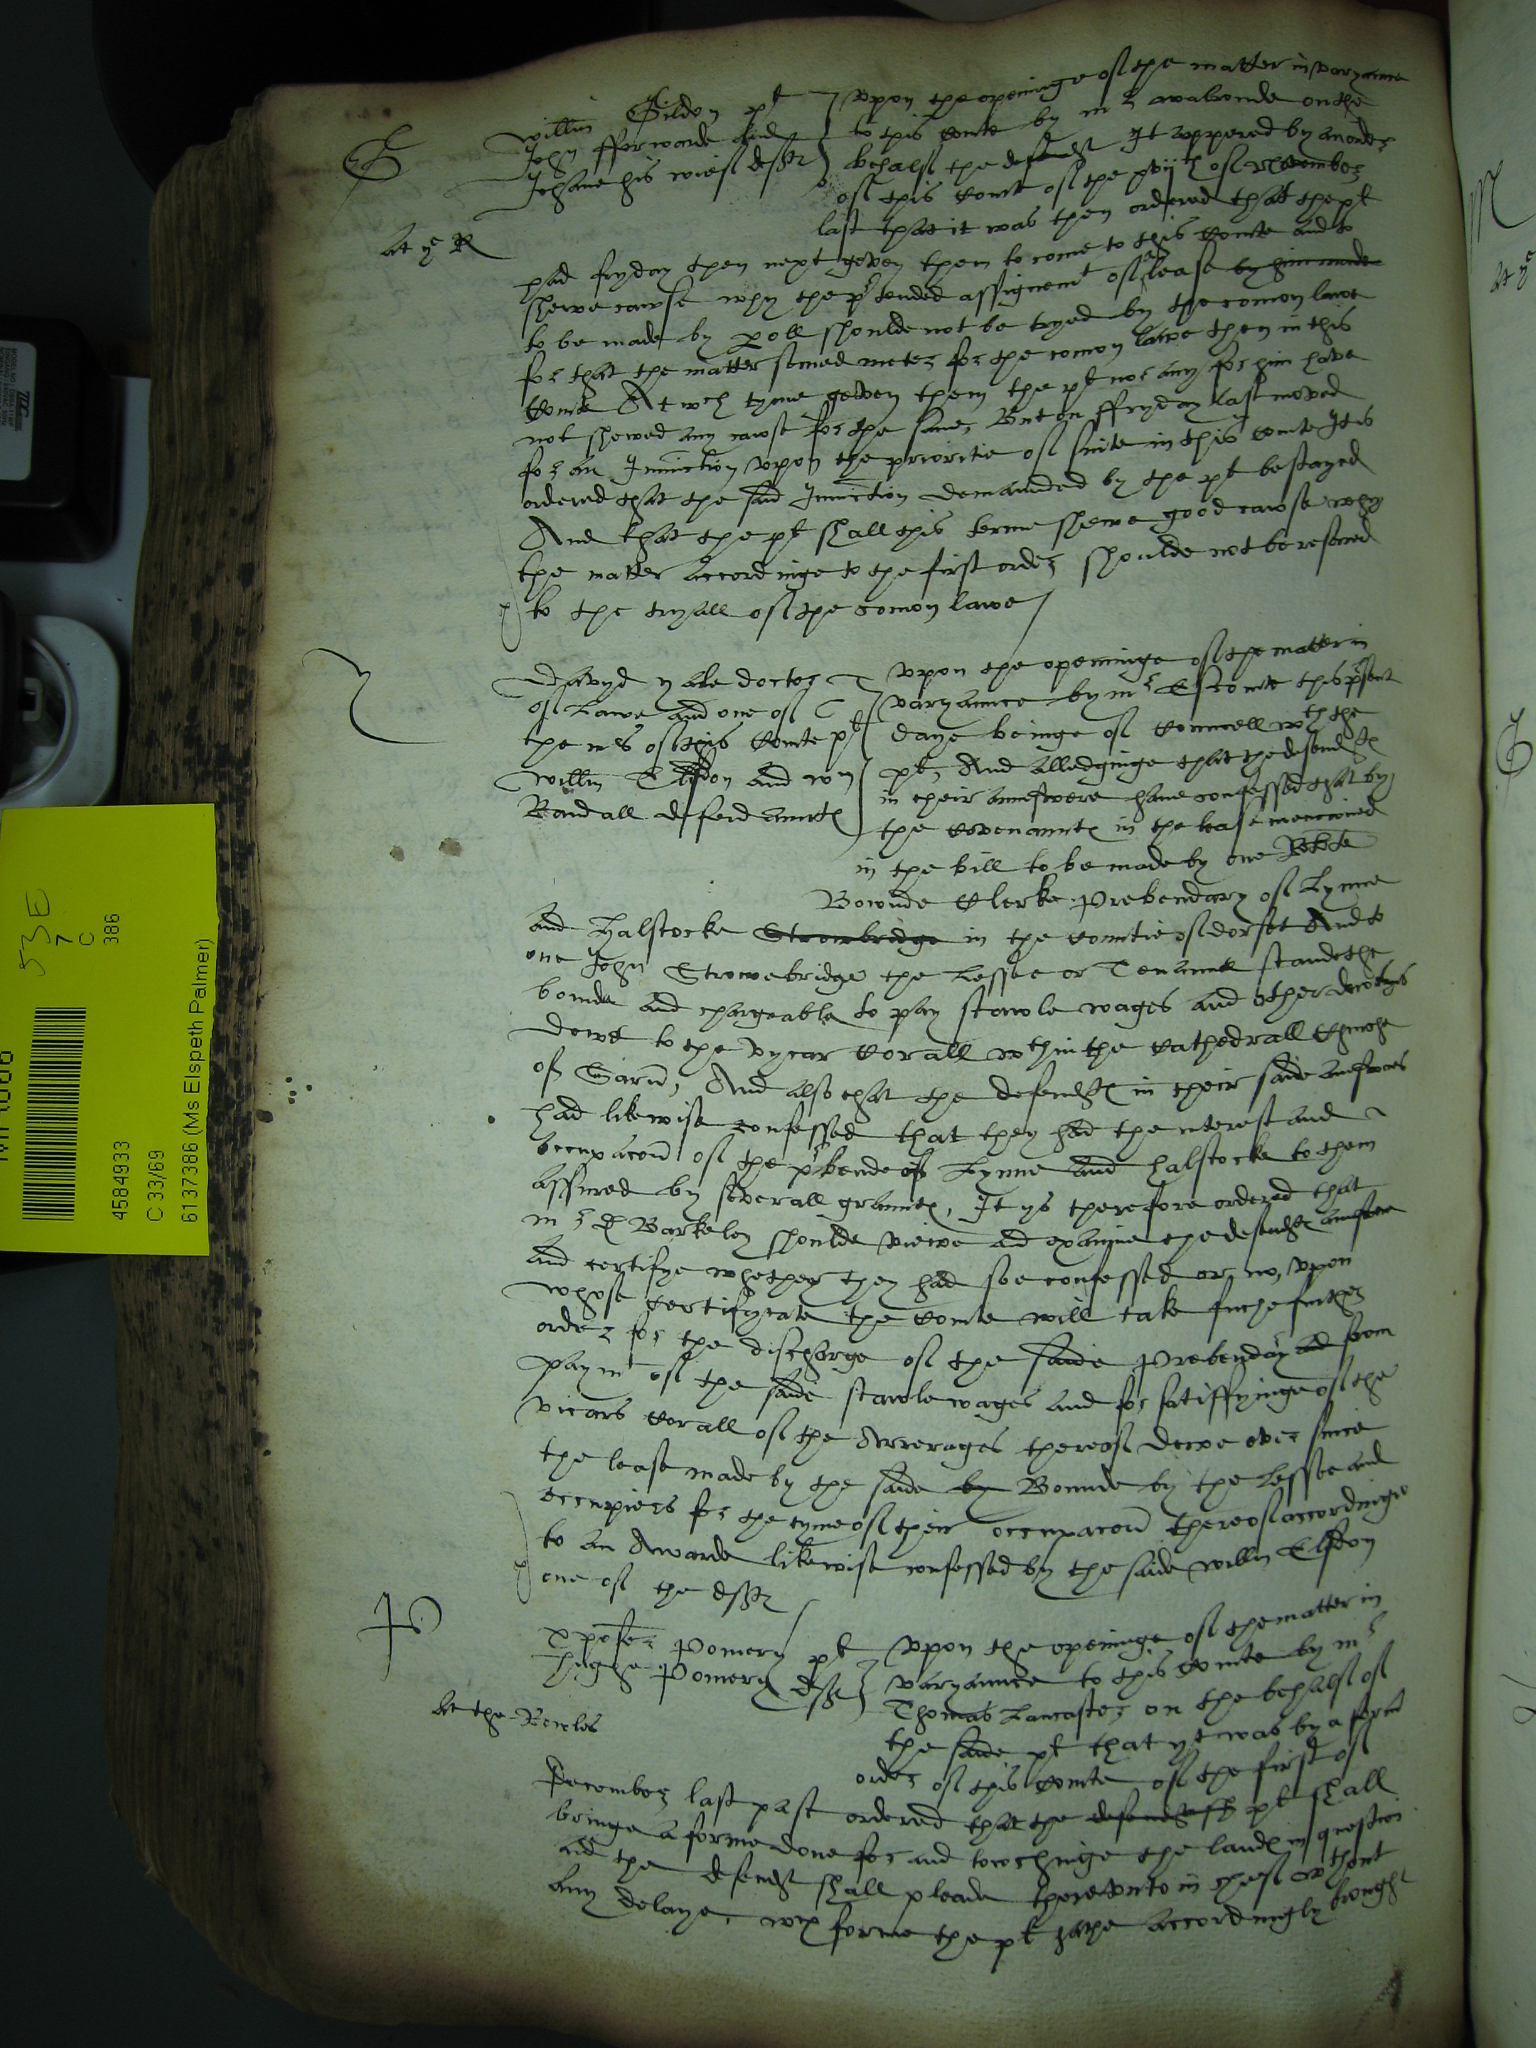 G
Willm Gildon pt
John fforwarde and
Johane his wief defts
At ye R
Upon the openinge of the matter in varyaunce
to this Courte by mr on the
behalf the defendt It appered by an order
of this Courte of the xviijth of November
last that it was then ordered that the pt
had fryday then next geven them to come to this Courte and to
shewe cawse why the ptended assignemt of a lease by him made
to be made by poll shoulde not be tryed by the comon lawe
for that the matter semed meter for the comon lawe then in this
Courte At wch tyme geven them the pt nor any for him have
not shewed any cawse for the same, But on ffryday last moved
for an Iniunction upon the prioritie of suite in this Courte It is
ordered that the said Iniunction demaunded by the pt be stayed
And that the pt shall this terme shewe good cawse why
the matter accordinge to the first order shoulde not be resorted
to the tryall of the comon lawe
Y
Davyd yale doctor
of Lawe and one of
the mrs of this Courte pt
Willm Elsdon and Wm
Randall defendauntes
Upon the openinge of the matter in
varyaunce by mr Estcourte this psent
daye beinge of Councell wth the
pt, And alledginge that the defendtes
in their aunswere have confessed that by
the Covenauntes in the lease mencioned
in the bill to be made by one
Bounde Clerke Prebendary of Lyme
and Halstocke Strowbridge in the Countie of dorset And to
one John Strowebridge the Lessee or Tenaunte standethe
bounde and chargeable to pay stawle wages and other dewties
dewe to the vycar Corall wthin the Cathedrall Churche
of Sarū, And also that the defendtes in their saide aunsweres
had likewise confessed that they had the interest and
occupacon of the pbende of Lyme and halstocke to them
assured by severall grauntes, It ys therefore ordered that
mr d Barkeley shoulde viewe and examine the defendtes aunswere
and certifye whether they had soe confessed or no, upon
whose certifycate the Courte will take suche further
order for the discharge of the saide Prebendary and from
paymt of the saide stawle wages and for satisffyinge of the
vicars Corall of the Arrerages thereof dewe ever since
the lease made by the saide by Bounde by the Lessee and
occupiers for the tyme of their occupacon thereof accordinge
to an Awarde likewise confessed by the saide willm Elsdon
one of the defts
P
Xpofer Pomery pt
Hughe Pomery deft
At the Rowles
Upon the openinge of the matter in
varyaunce to this Courte by mr
Thomas Lancaster on the behalf of
the saide pt that yt was by a former
order of this Courte of the first of
December last past ordered that the defendaunte pt shall
bringe a formedone for and towchinge the landes in question
and the defendt shall pleade thereunto in chief wthout
any delaye, wch forme the pt hathe accordingly brought
53E
7
C
386
4584933
C 33/69
6137386 (Ms Elspeth Palmer)